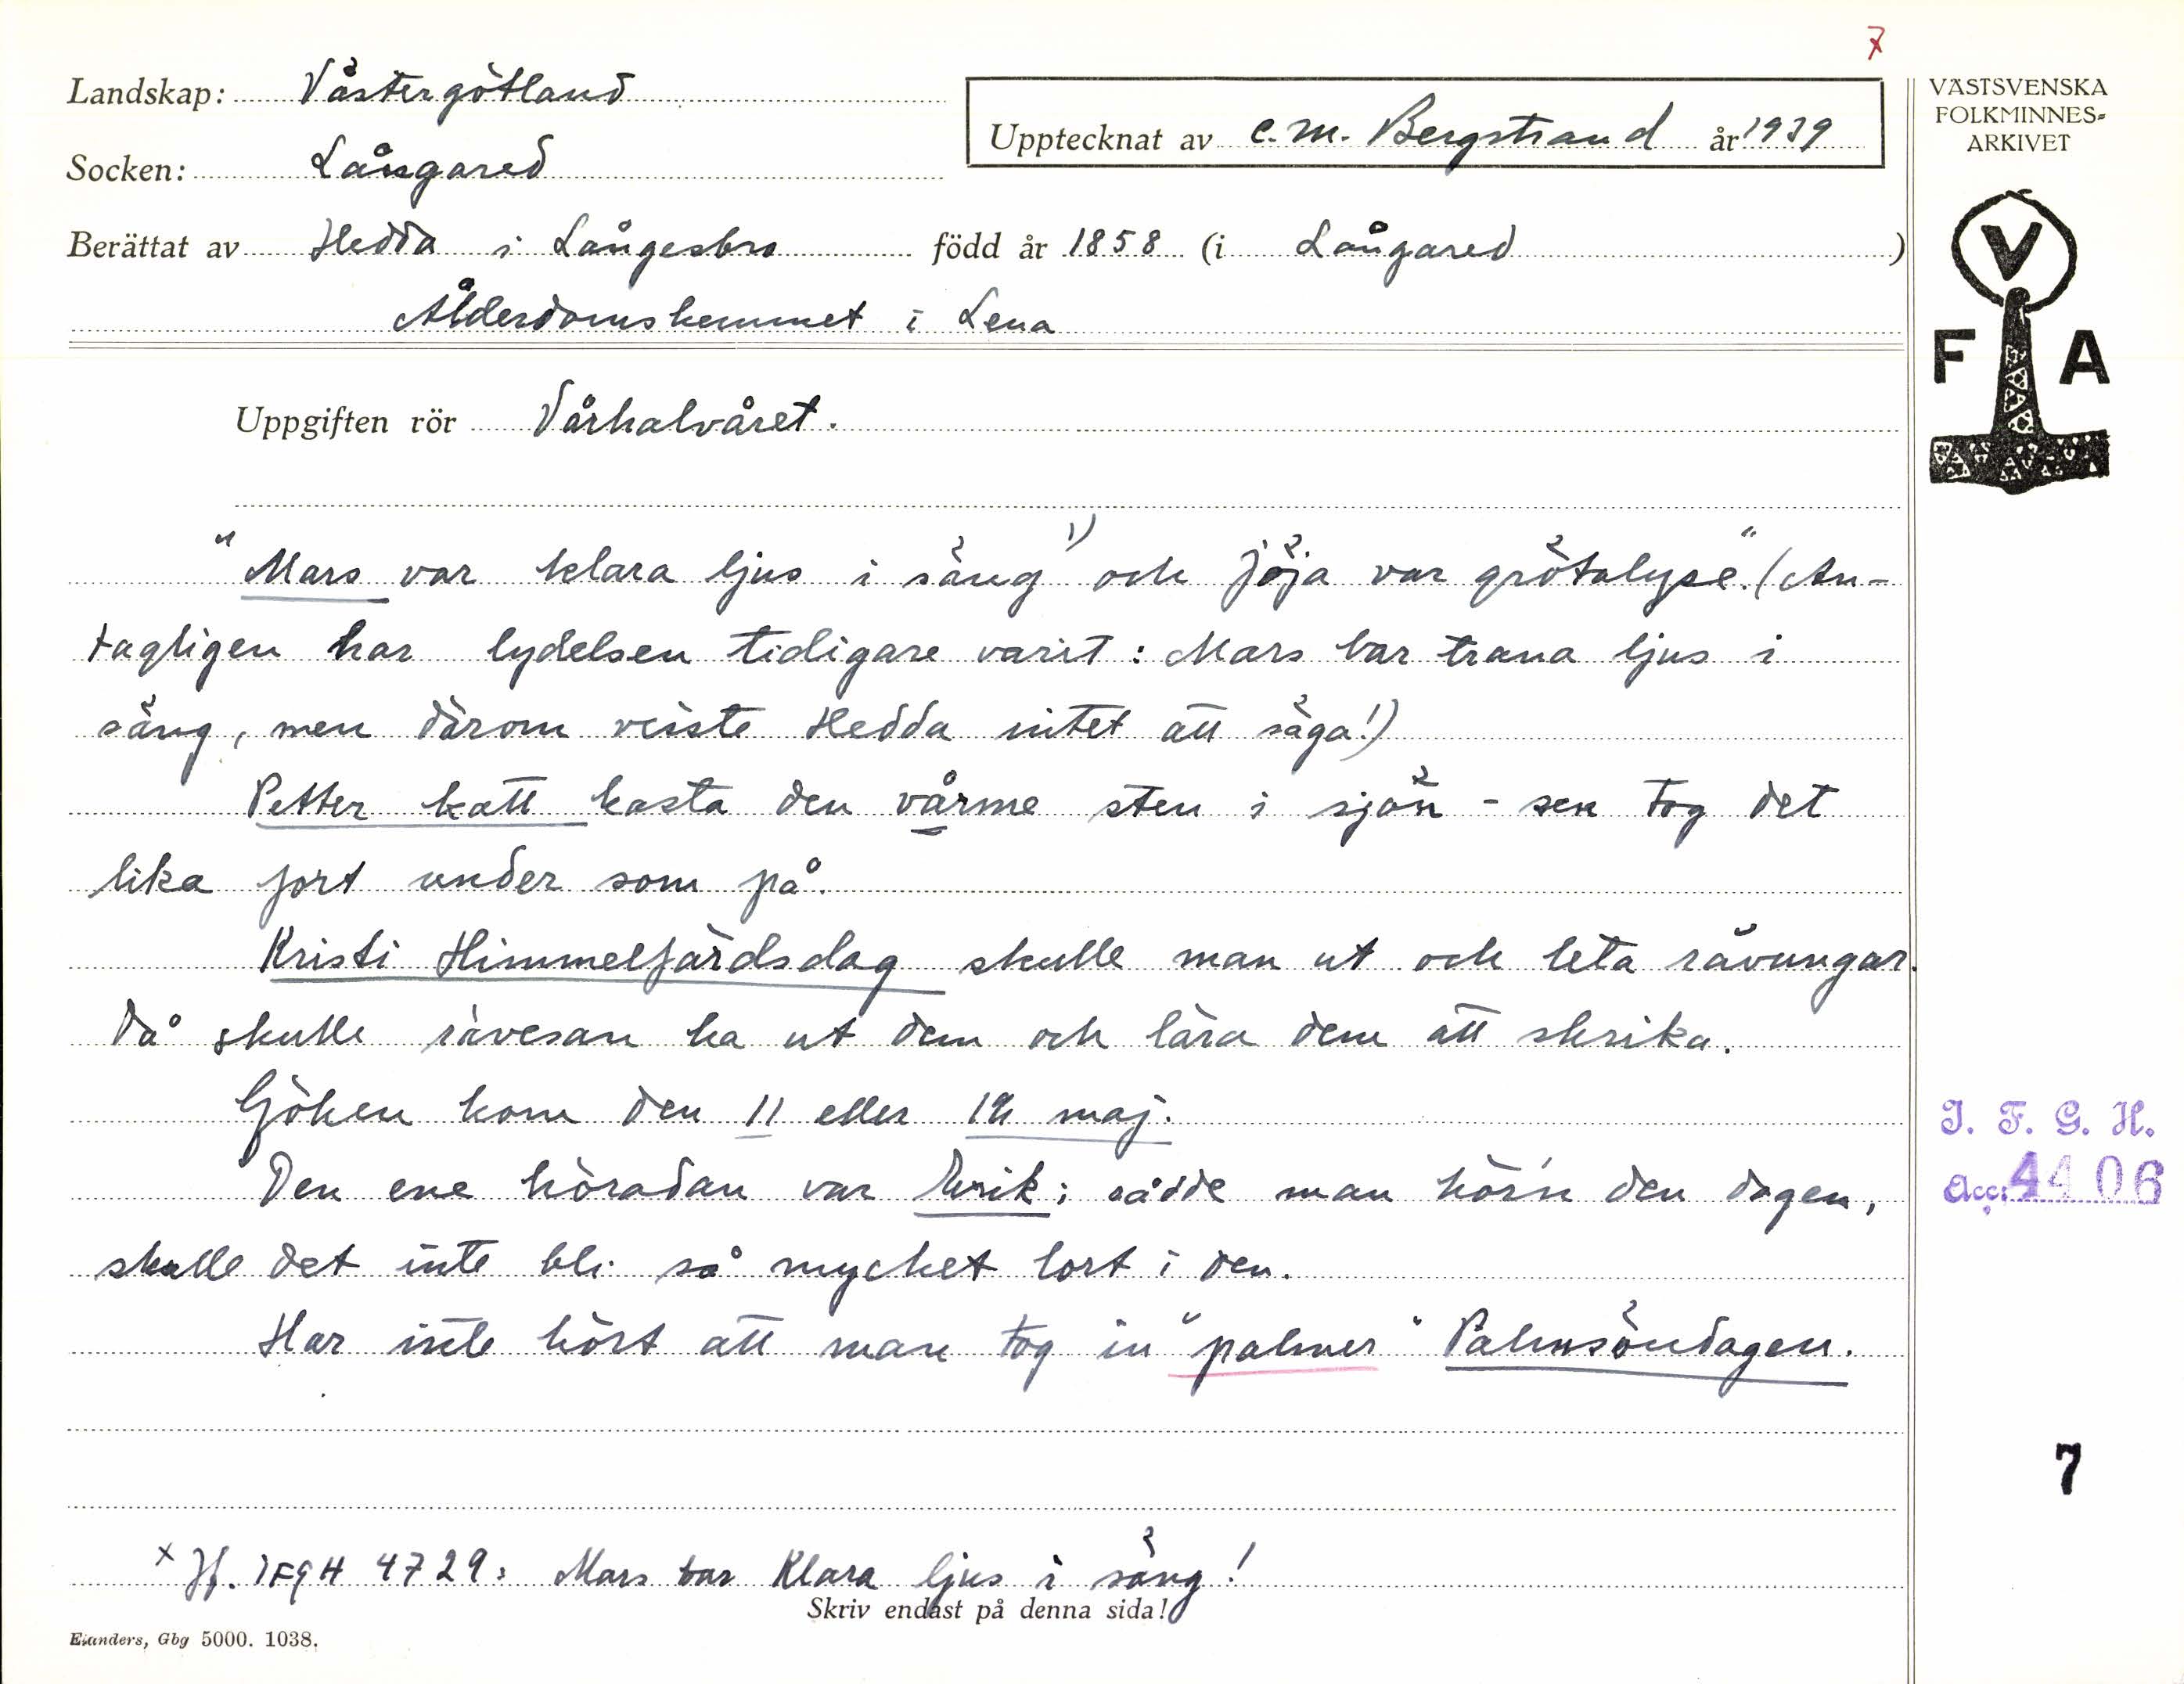 7
Landskap: Västergötland
Upptecknat av C. M. Bergstrand år 1939
Socken: Långared
Berättat av Hedda i Långesbro född år 1858 (i Långared)
Ålderdomshemmet i Lena
Uppgiften rör Vårhalvåret.
"Mars var klara ljus i säng 1) och Jöja var grötalyse". (An-
tagligen har lydelsen tidigare varit: Mars bar trana ljus i
säng, men därom visste Hedda intet att säga!)
Petter katt kasta den vårme sten i sjön - sen tog det
lika fort under som på.
Kristi Himmelfärdsdag skulle man ut och leta rävungar.
Då skulle rävesan ha ut dem och lära dem att skrika.
Göken kom den 11 eller 12 maj.
Den ene höradan var Erik; sådde man hör'n den dagen,
skulle det inte bli så mycket lort i den.
Har inte hört att man tog in "palmer" Palmsöndagen.
x Jf. IFGH 4729: Mars bar Klara ljus i säng!
Skriv endast på denna sida!
Elanders, Gbg 5000. 1038.
VÄSTSVENSKA
FOLKMINNES-
ARKIVET
V
F A
I. F. G. H.
Acc: 4406
7